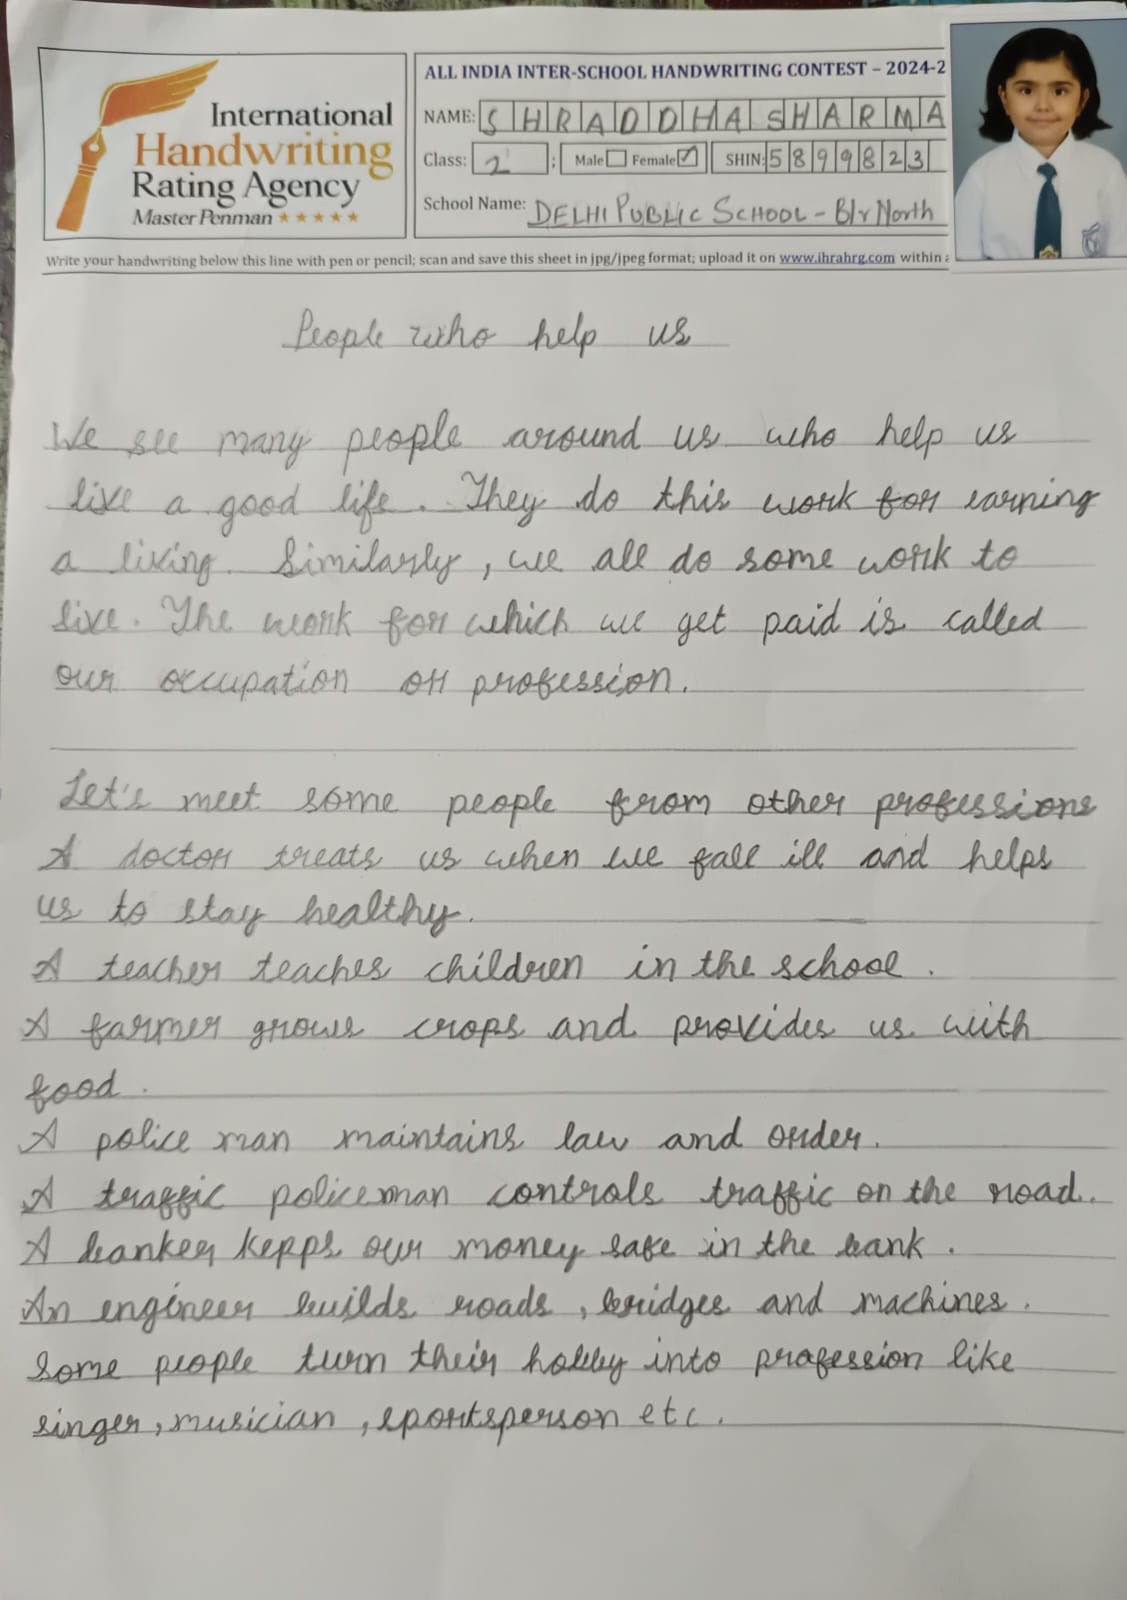 International
Handwriting
Rating Agency
Master Penman
ALL INDIA INTER-SCHOOL HANDWRITING CONTEST – 2024-2
NAME: SHRADDHA SHARMA
Class: 2 ; Male Female ✓ SHIN: 5899823
School Name: DELHI PUBLIC SCHOOL - Blr North
Write your handwriting below this line with pen or pencil; scan and save this sheet in jpg/jpeg format; upload it on www.ihrahrg.com within
People who help us
We see many people around us who help us
live a good life. They do this work for earning
a living. Similarly, we all do some work to
live. The work for which we get paid is called
our occupation or profession.
Let's meet some people from other professions
A doctor treats us when we fall ill and helps
us to stay healthy.
A teacher teaches children in the school.
A farmer grows crops and provides us with
food.
A police man maintains law and order.
A traffic policeman controls traffic on the road.
A banker kepps our money safe in the bank.
An engineer builds roads, bridges and machines.
Some people turn their hobby into profession like
singer, musician, sportsperson etc.